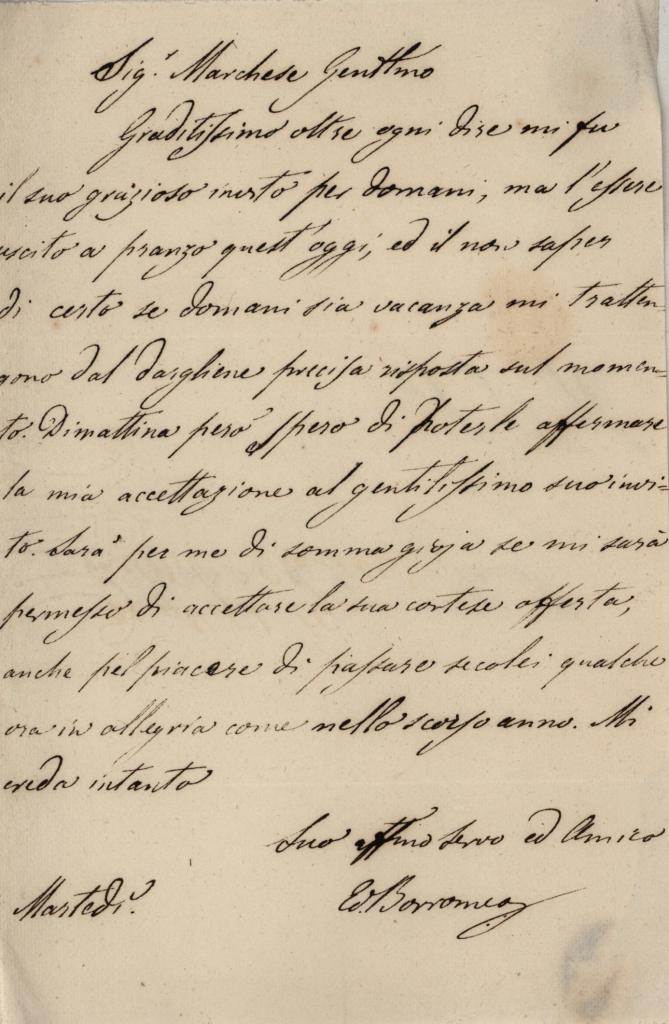 Sig.r Marchese Gentilmo
Graditissimo oltre ogni dire mi fu
il suo grazioso invito per domani, ma l'essere
uscito a pranzo quest'oggi, ed il non saper
di certo se domani sia vacanza mi tratten=
gono dal dargliene precisa risposta sul momen=
to. Dimattina però spero di poterle affermare
la mia accettazione al gentilissimo suo invi=
to. Sarà per me di somma gioja se mi sarà
permesso di accettare la sua cortese offerta,
anche pel piacere di passare secolei qualche
ora in allegria come nello scorso anno. Mi
creda intanto
Suo affmo Servo ed Amico
Martedì.
Ed. Borromeo